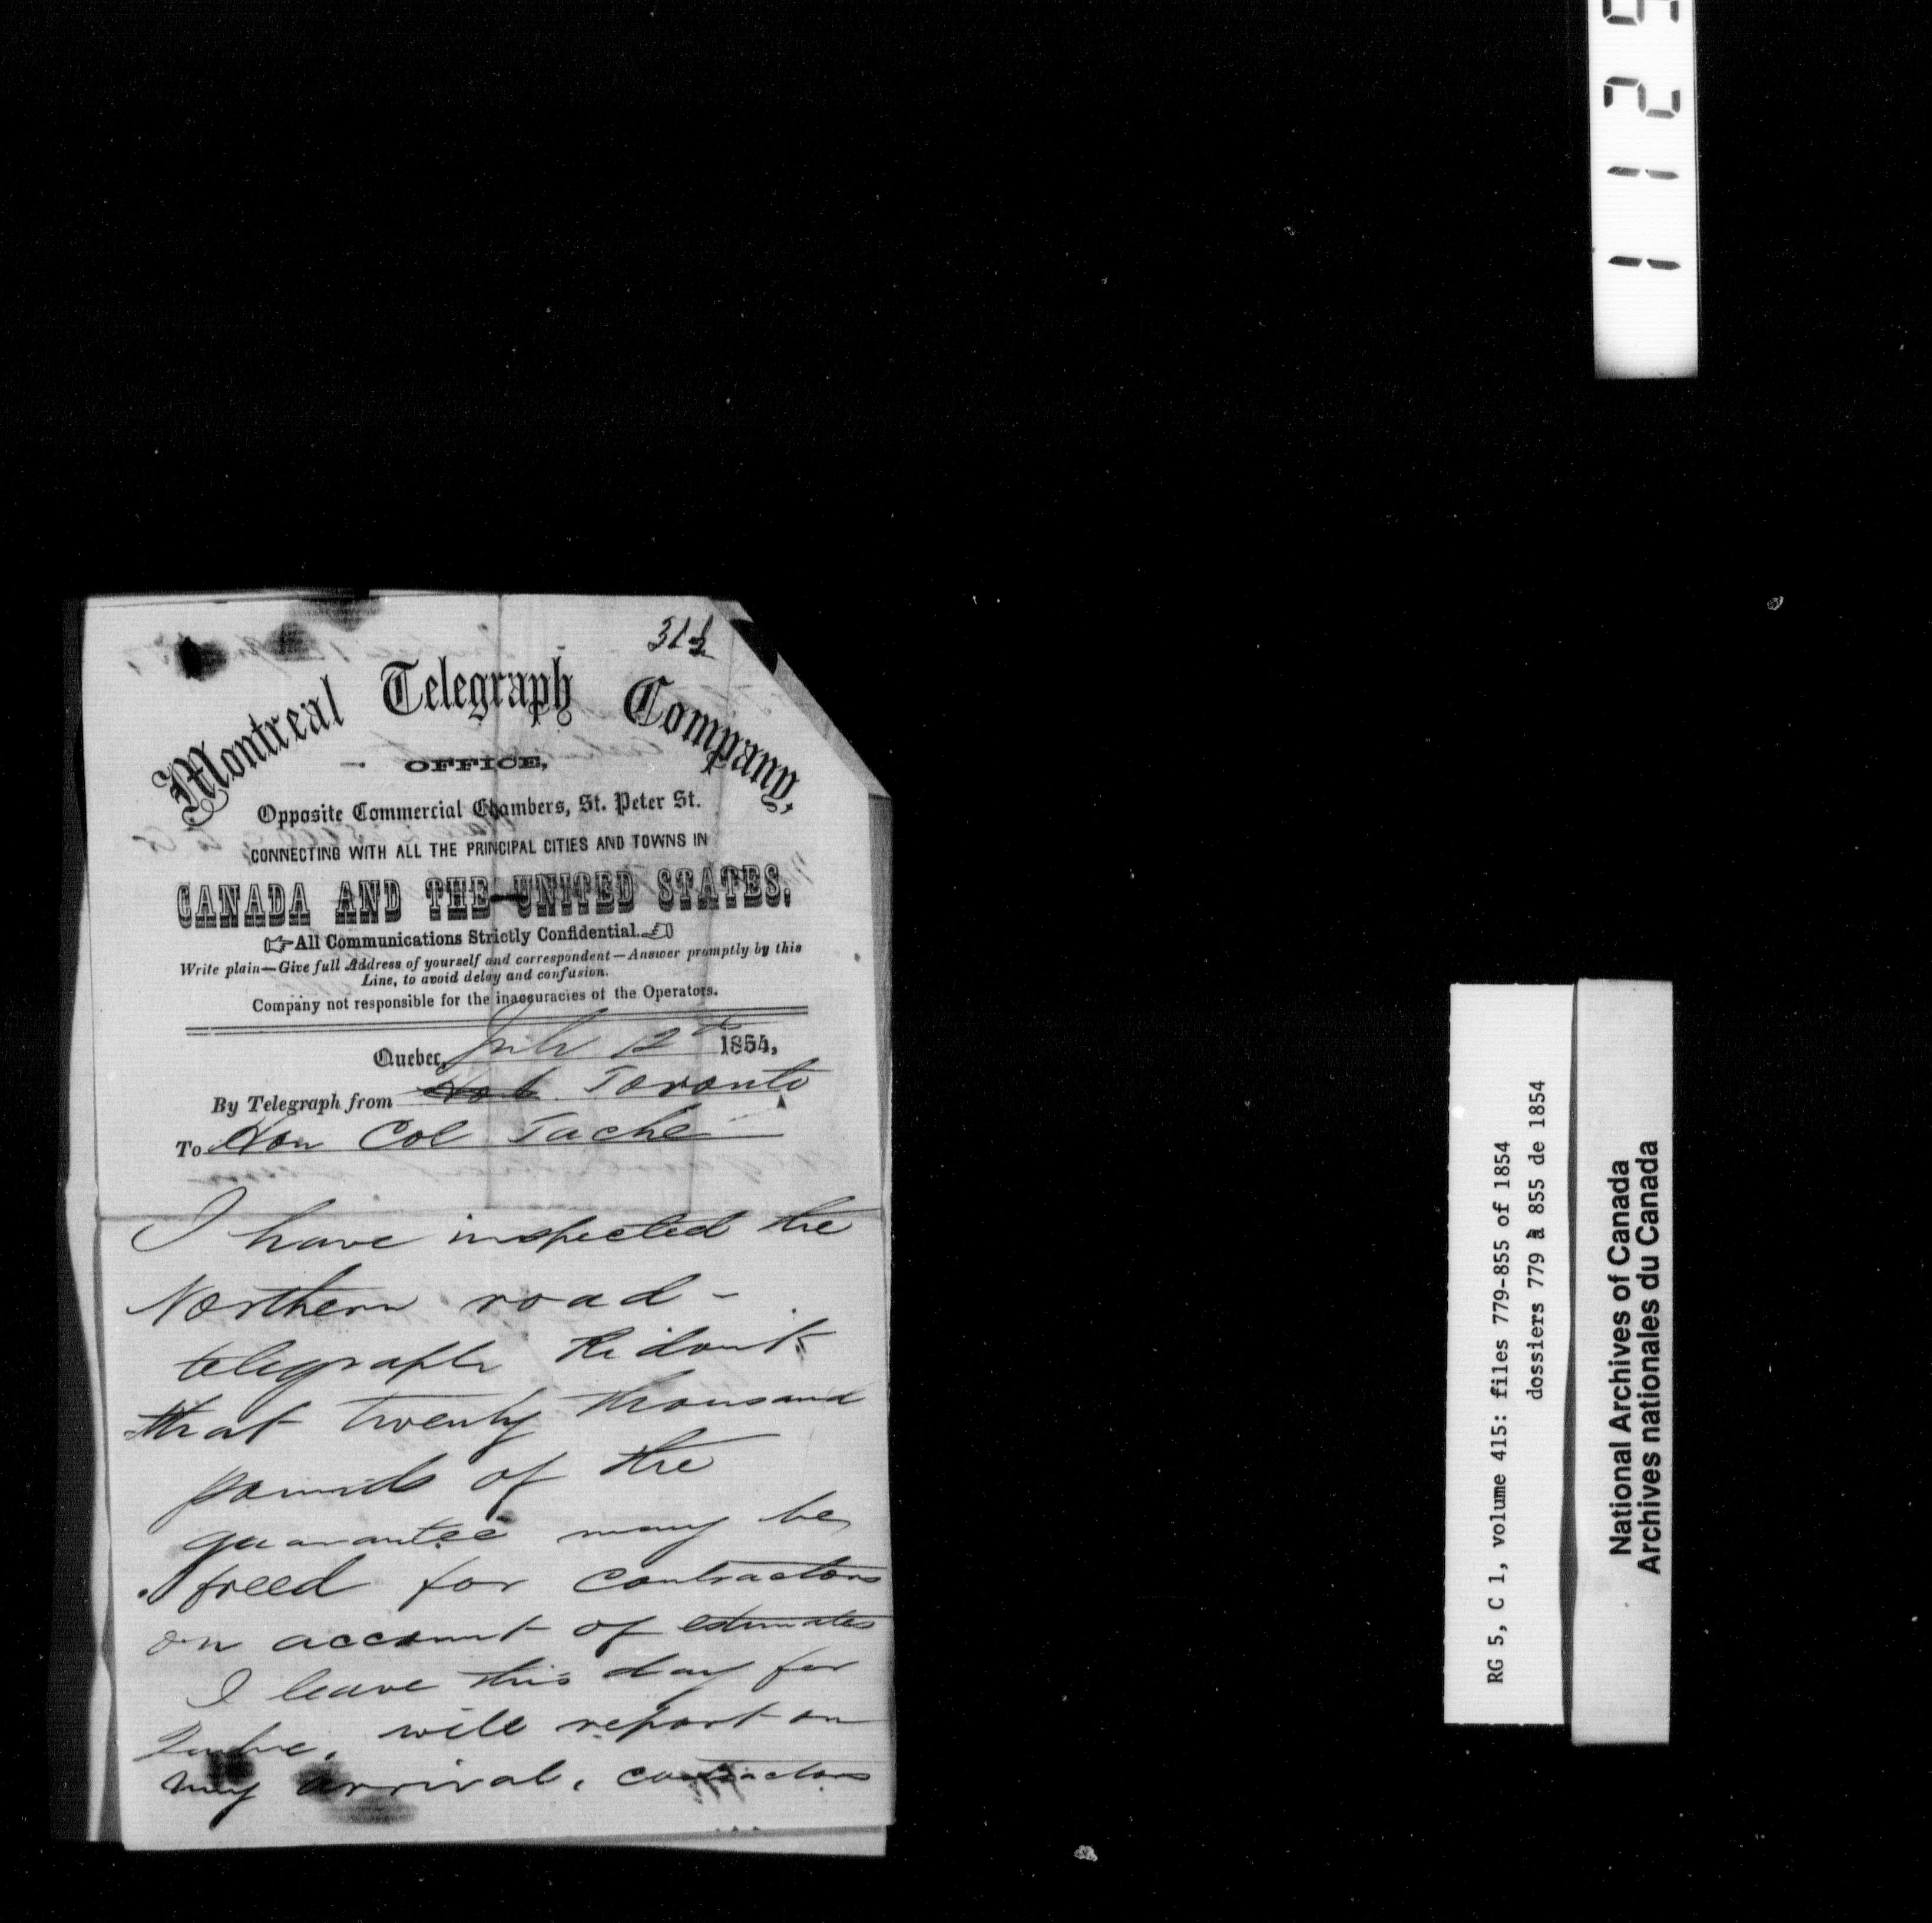 Montreal Telegraph Company,
OFFICE,
Opposite Commercial Chambers, St. Peter St.
CONNECTING WITH ALL THE PRINCIPAL CITIES AND TOWNS IN
CANADA AND THE UNITED STATES.
All Communications Strictly Confidential.
Write plain—Give full Address of yourself and correspondent—Answer promptly by this
Line, to avoid delay and confusion.
Company not responsible for the inaccuracies of the Operators.
Quebec, July 12 1854,
By Telegraph from Toronto
To Hon Col Taché
I have inspected the
Northern road -
telegraph Ridout
that twenty thousand
pounds of the
guarantee may be
freed for contractors
on account of estimates
I leave this day for
Quebec. will report on
my arrival. contractors
RG 5, C 1, volume 415: files 779-855 of 1854
dossiers 779 à 855 de 1854
National Archives of Canada
Archives nationales du Canada